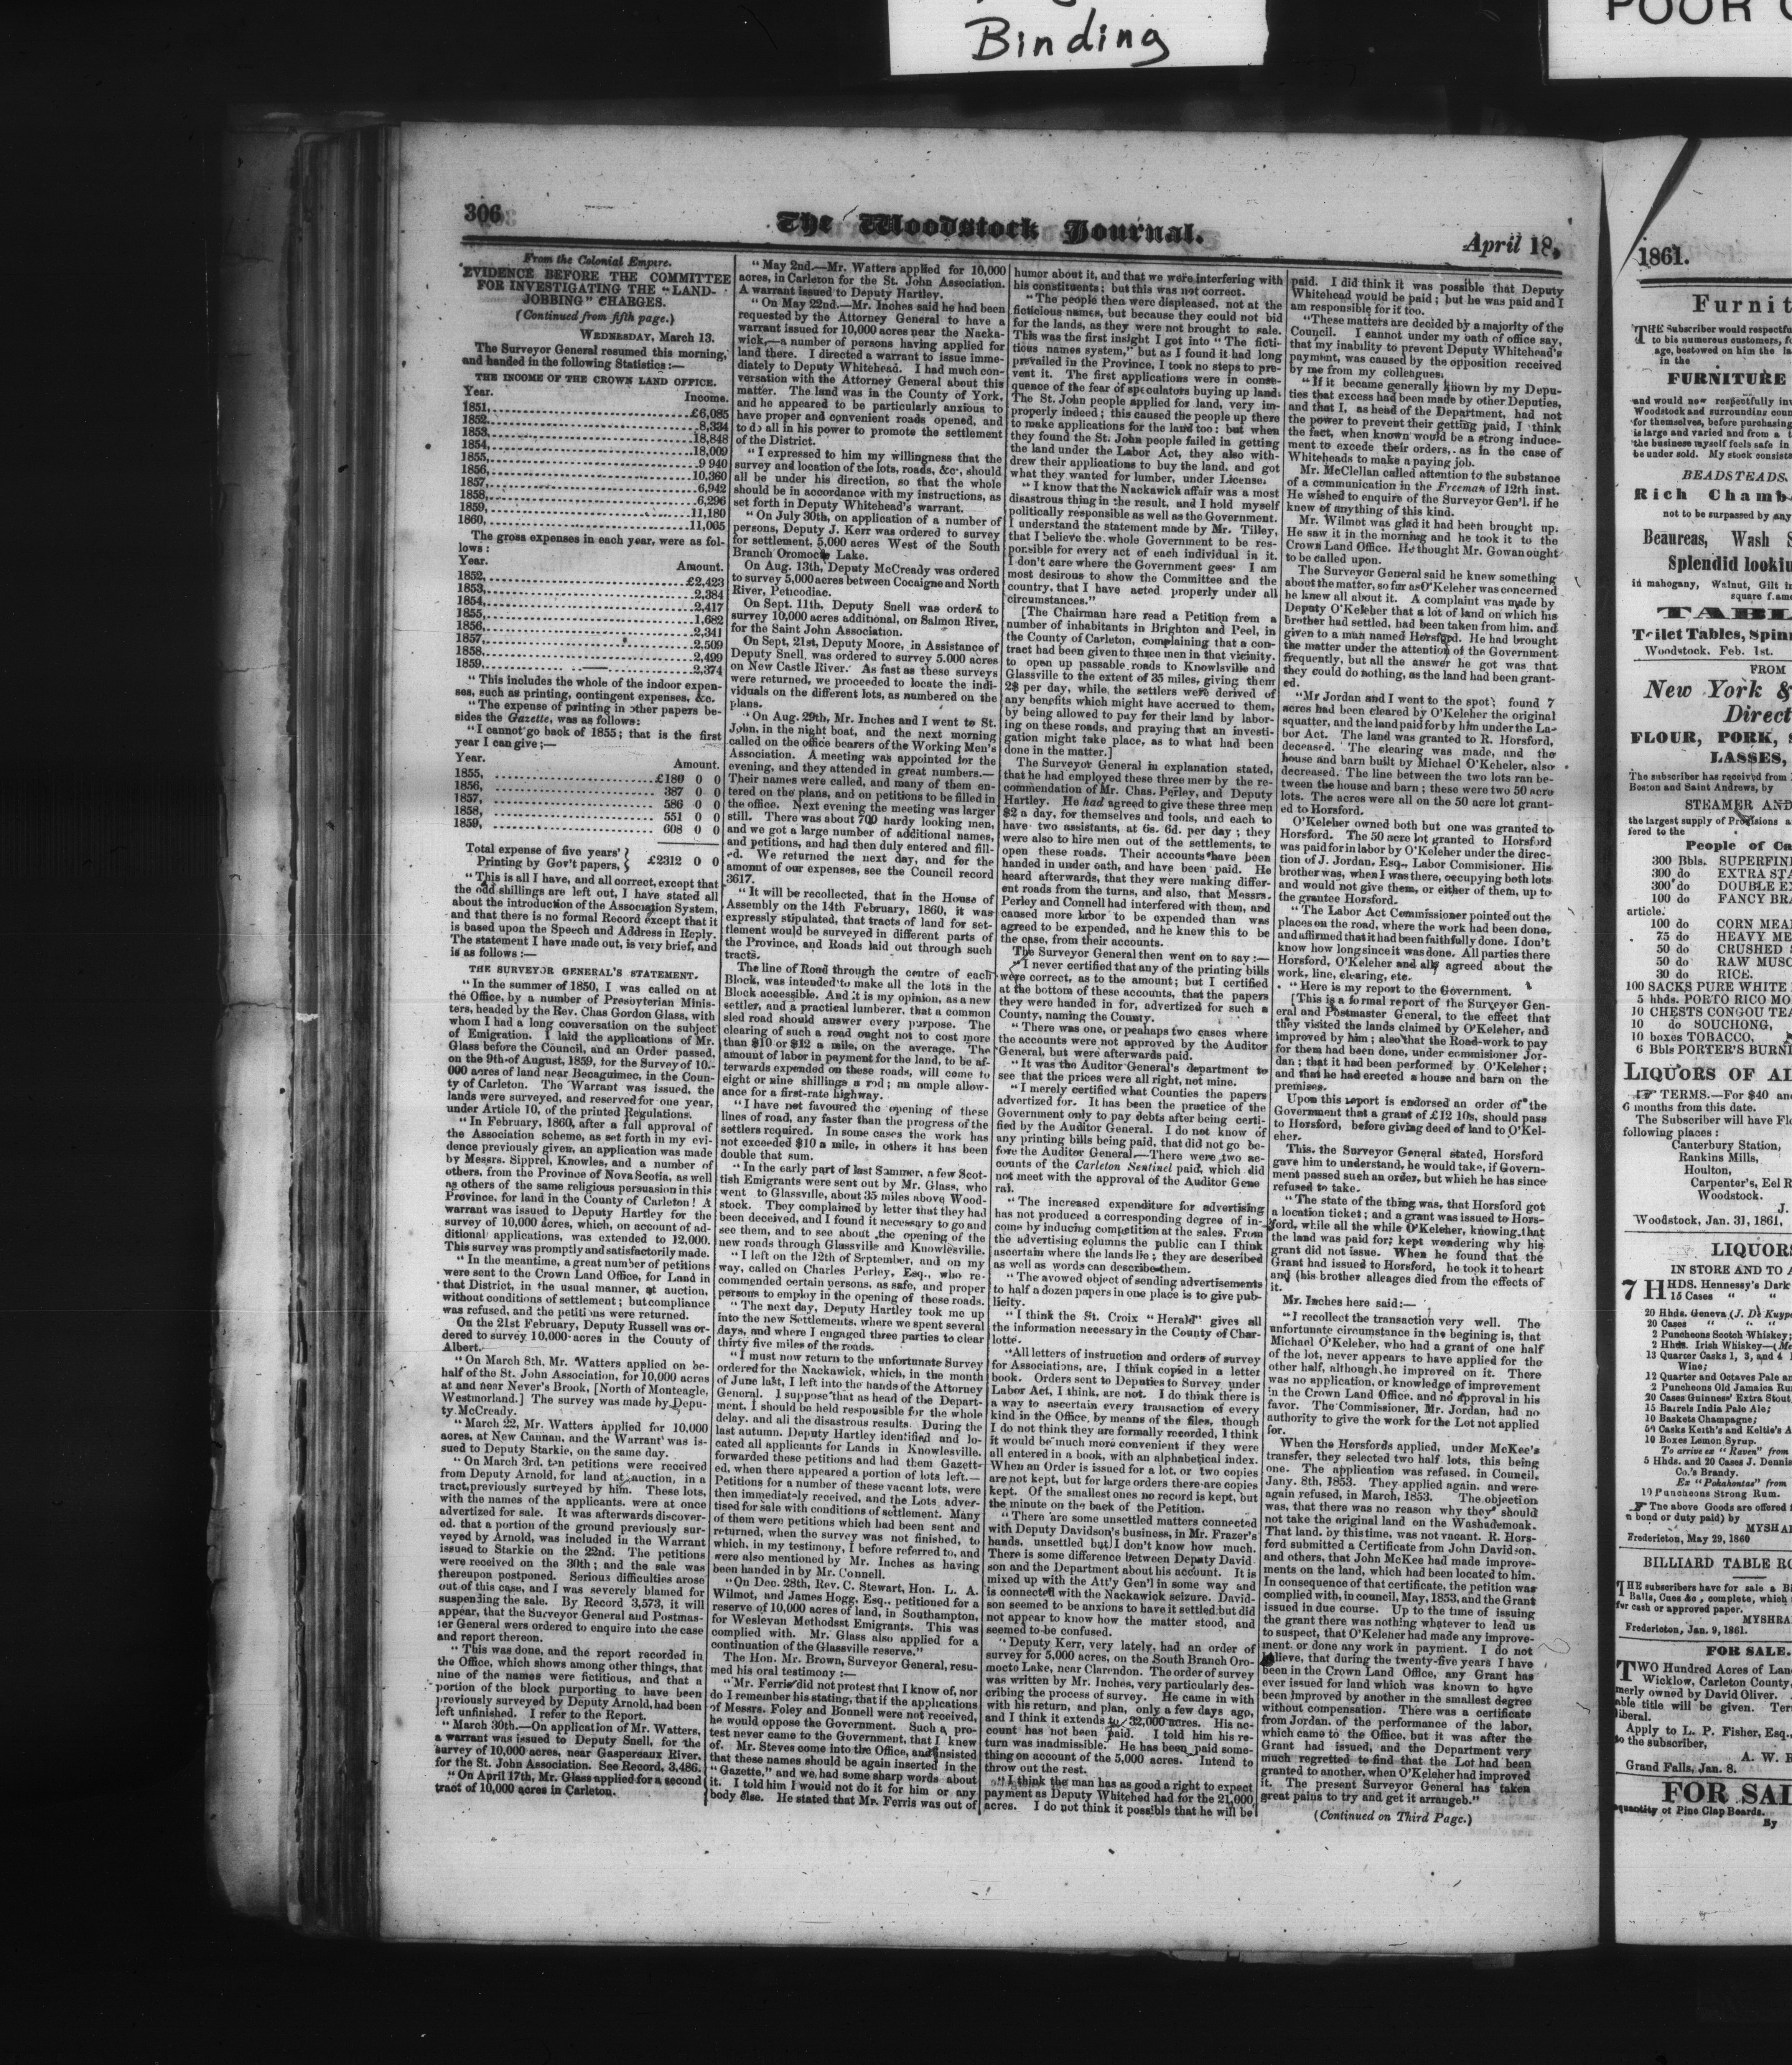 Binding
POOR
306
The Woodstock Journal.
April 18,
From the Colonial Empire.
EVIDENCE BEFORE THE COMMITTEE
FOR INVESTIGATING THE "LAND-
JOBBING" CHARGES.
(Continued from fifth page.)
WEDNESDAY, March 13.
The Surveyor General resumed this morning,
and handed in the following Statistics:—
THE INCOME OF THE CROWN LAND OFFICE.
Year. Income.
1851, £6,085
1852, 8,334
1853, 18,848
1854, 18,009
1855, 9 940
1856, 10,360
1857, 6,942
1858, 6,296
1859, 11,180
1860, 11,065
The gross expenses in each year, were as fol-
lows:
Year. Amount.
1852, £2,423
1853, 2,384
1854, 2,417
1855, 1,682
1856, 2,341
1857, 2,509
1858, 2,499
1859, 2,374
"This includes the whole of the indoor expen-
ses, such as printing, contingent expenses, &c.
"The expense of printing in other papers be-
sides the Gazette, was as follows:
"I cannot go back of 1855; that is the first
year I can give;—
Year. Amount.
1855, £180 0 0
1856, 387 0 0
1857, 586 0 0
1858, 551 0 0
1859, 608 0 0
Total expense of five years'
Printing by Gov't papers, } £2312 0 0
"This is all I have, and all correct, except that
the odd shillings are left out, I have stated all
about the introduction of the Association System,
and that there is no formal Record except that it
is based upon the Speech and Address in Reply.
The statement I have made out, is very brief, and
is as follows:—
THE SURVEYOR GENERAL'S STATEMENT.
"In the summer of 1850, I was called on at
the Office, by a number of Presbyterian Minis-
ters, headed by the Rev. Chas Gordon Glass, with
whom I had a long conversation on the subject
of Emigration. I laid the applications of Mr.
Glass before the Council, and an Order passed,
on the 9th of August, 1859, for the Survey of 10,-
000 acres of land near Becaguimec, in the Coun-
ty of Carleton. The Warrant was issued, the
lands were surveyed, and reserved for one year,
under Article 10, of the printed Regulations.
"In February, 1860, after a full approval of
the Association scheme, as set forth in my evi-
dence previously given, an application was made
by Messrs. Sipprel, Knowles, and a number of
others, from the Province of Nova Scotia, as well
as others of the same religious persuasion in this
Province, for land in the County of Carleton! A
warrant was issued to Deputy Hartley for the
survey of 10,000 acres, which, on account of ad-
ditional applications, was extended to 12,000.
This survey was promptly and satisfactorily made.
"In the meantime, a great number of petitions
were sent to the Crown Land Office, for Land in
that District, in the usual manner, at auction,
without conditions of settlement; but compliance
was refused, and the petitions were returned.
On the 21st February, Deputy Russell was or-
dered to survey 10,000 acres in the County of
Albert.
"On March 8th, Mr. Watters applied on be-
half of the St. John Association, for 10,000 acres
at and near Never's Brook, [North of Monteagle,
Westmorland.] The survey was made by Depu-
ty McCready.
"March 22, Mr. Watters applied for 10,000
acres, at New Cannan, and the Warrant was is-
sued to Deputy Starkie, on the same day.
"On March 3rd, ten petitions were received
from Deputy Arnold, for land at auction, in a
tract, previously surveyed by him. These lots,
with the names of the applicants, were at once
advertized for sale. It was afterwards discover-
ed, that a portion of the ground previously sur-
veyed by Arnold, was included in the Warrant
issued to Starkie on the 22nd. The petitions
were received on the 30th; and the sale was
thereupon postponed. Serious difficulties arose
out of this case, and I was severely blamed for
suspending the sale. By Record 3,573, it will
appear, that the Surveyor General and Postmas-
ter General were ordered to enquire into the case
and report thereon.
"This was done, and the report recorded in
the Office, which shows among other things, that
nine of the names were fictitious, and that a
portion of the block purporting to have been
previously surveyed by Deputy Arnold, had been
left unfinished. I refer to the Report.
"March 30th.—On application of Mr. Watters,
a warrant was issued to Deputy Snell, for the
survey of 10,000 acres, near Gaspereaux River,
for the St. John Association. See Record, 3,486.
"On April 17th, Mr. Glass applied for a second
tract of 10,000 acres in Carleton.
"May 2nd.—Mr. Watters applied for 10,000
acres, in Carleton for the St. John Association.
A warrant issued to Deputy Hartley.
"On May 22nd.—Mr. Inches said he had been
requested by the Attorney General to have a
warrant issued for 10,000 acres near the Nacka-
wick,—a number of persons having applied for
land there. I directed a warrant to issue imme-
diately to Deputy Whitehead. I had much con-
versation with the Attorney General about this
matter. The land was in the County of York,
and he appeared to be particularly anxious to
have proper and convenient roads opened, and
to do all in his power to promote the settlement
of the District.
"I expressed to him my willingness that the
survey and location of the lots, roads, &c., should
all be under his direction, so that the whole
should be in accordance with my instructions, as
set forth in Deputy Whitehead's warrant.
"On July 30th, on application of a number of
persons, Deputy J. Kerr was ordered to survey
for settlement, 5,000 acres West of the South
Branch Oromocto Lake.
On Aug. 13th, Deputy McCready was ordered
to survey 5,000 acres between Cocaigne and North
River, Peticodiac.
On Sept. 11th, Deputy Snell was ordered to
survey 10,000 acres additional, on Salmon River,
for the Saint John Association.
On Sept, 21st, Deputy Moore, in Assistance of
Deputy Snell, was ordered to survey 5.000 acres
on New Castle River. As fast as these surveys
were returned, we proceeded to locate the indi-
viduals on the different lots, as numbered on the
plans.
"On Aug. 29th, Mr. Inches and I went to St.
John, in the night boat, and the next morning
called on the office bearers of the Working Men's
Association. A meeting was appointed for the
evening, and they attended in great numbers.—
Their names were called, and many of them en-
tered on the plans, and on petitions to be filled in
the office. Next evening the meeting was larger
still. There was about 700 hardy looking men,
and we got a large number of additional names,
and petitions, and had then duly entered and fill-
ed. We returned the next day, and for the
amount of our expenses, see the Council record
3617.
"It will be recollected, that in the House of
Assembly on the 14th February, 1860, it was
expressly stipulated, that tracts of land for set-
tlement would be surveyed in different parts of
the Province, and Roads laid out through such
tracts.
The line of Road through the centre of each
Block, was intended to make all the lots in the
Block accessible. And it is my opinion, as a new
settler, and a practical lumberer, that a common
sled road should answer every purpose. The
clearing of such a road ought not to cost more
than $10 or $12 a mile, on the average. The
amount of labor in payment for the land, to be af-
terwards expended on these roads, will come to
eight or nine shillings a rod; an ample allow-
ance for a first-rate highway.
"I have not favoured the opening of these
lines of road, any faster than the progress of the
settlers required. In some cases the work has
not exceeded $10 a mile, in others it has been
double that sum.
"In the early part of last Summer, a few Scot-
tish Emigrants were sent out by Mr. Glass, who
went to Glassville, about 35 miles above Wood-
stock. They complained by letter that they had
been deceived, and I found it necessary to go and
see them, and to see about the opening of the
new roads through Glassville and Knowlesville.
"I left on the 12th of September, and on my
way, called on Charles Perley, Esq., who re-
commended certain persons, as safe, and proper
persons to employ in the opening of these roads.
"The next day, Deputy Hartley took me up
into the new Settlements, where we spent several
days, and where I engaged three parties to clear
thirty five miles of the roads.
"I must now return to the unfortunate Survey
ordered for the Nackawick, which, in the month
of June last, I left into the hands of the Attorney
General. I suppose that as head of the Depart-
ment, I should be held responsible for the whole
delay, and all the disastrous results. During the
last autumn, Deputy Hartley identified and lo-
cated all applicants for Lands in Knowlesville,
forwarded these petitions and had them Gazett-
ed, when there appeared a portion of lots left.—
Petitions for a number of these vacant lots, were
then immediately received, and the Lots adver-
tised for sale with conditions of settlement. Many
of them were petitions which had been sent and
returned, when the survey was not finished, to
which, in my testimony, I before referred to, and
were also mentioned by Mr. Inches as having
been handed in by Mr. Connell.
"On Dec. 28th, Rev. C. Stewart, Hon. L. A.
Wilmot, and James Hogg, Esq., petitioned for a
reserve of 10,000 acres of land, in Southampton,
for Wesleyan Methodsst Emigrants. This was
complied with. Mr. Glass also applied for a
continuation of the Glassville reserve,"
The Hon. Mr. Brown, Surveyor General, resu-
med his oral testimony:—
"Mr. Ferris did not protest that I know of, nor
do I remember his stating, that if the applications
of Messrs. Foley and Bonnell were not received,
he would oppose the Government. Such a pro-
test never came to the Government, that I knew
of. Mr. Steves come into the Office, and insisted
that these names should be again inserted in the
"Gazette," and we had some sharp words about
it. I told him I would not do it for him or any
body else. He stated that Mr. Ferris was out of
humor about it, and that we were interfering with
his constituents; but this was not correct.
"The people then were displeased, not at the
ficticious names, but because they could not bid
for the lands, as they were not brought to sale.
This was the first insight I got into "The ficti-
tious names system," but as I found it had long
prevailed in the Province, I took no steps to pre-
vent it. The first applications were in conse-
quence of the fear of speculators buying up land.
The St. John people applied for land, very im-
properly indeed; this caused the people up there
to make applications for the land too: but when
they found the St. John people failed in getting
the land under the Labor Act, they also with-
drew their applications to buy the land, and got
what they wanted for lumber, under License.
"I know that the Nackawick affair was a most
disastrous thing in the result, and I hold myself
politically responsible as well as the Government.
I understand the statement made by Mr. Tilley,
that I believe the whole Government to be res-
ponsible for every act of each individual in it.
I don't care where the Government goes I am
most desirous to show the Committee and the
country, that I have acted properly under all
circumstances."
[The Chairman hare read a Petition from a
number of inhabitants in Brighton and Peel, in
the County of Carleton, complaining that a con-
tract had been given to three men in that vicinity,
to open up passable roads to Knowlsville and
Glassville to the extent of 35 miles, giving them
2$ per day, while the settlers were derived of
any benefits which might have accrued to them,
by being allowed to pay for their land by labor-
ing on these roads, and praying that an investi-
gation might take place, as to what had been
done in the matter.]
The Surveyor General in explanation stated,
that he had employed these three men by the re-
commendation of Mr. Chas. Perley, and Deputy
Hartley. He had agreed to give these three men
$2 a day, for themselves and tools, and each to
have two assistants, at 6s. 6d. per day; they
were also to hire men out of the settlements, to
open these roads. Their accounts have been
handed in under oath, and have been paid. He
heard afterwards, that they were making differ-
ent roads from the turns, and also, that Messrs.
Perley and Connell had interfered with them, and
caused more labor to be expended than was
agreed to be expended, and he knew this to be
the case, from their accounts.
The Surveyor General then went on to say:—
"I never certified that any of the printing bills
were correct, as to the amount; but I certified
at the bottom of these accounts, that the papers
they were handed in for, advertized for such a
County, naming the County.
"There was one, or peahaps two cases where
the accounts were not approved by the Auditor
General, but were afterwards paid.
"It was the Auditor General's department to
see that the prices were all right, not mine.
"I merely certified what Counties the papers
advertized for. It has been the practice of the
Government only to pay debts after being certi-
fied by the Auditor General. I do not know of
any printing bills being paid, that did not go be-
fore the Auditor General.—There were two ac-
counts of the Carleton Sentinel paid, which did
not meet with the approval of the Auditor Gene
ral.
"The increased expenditure for advertising
has not produced a corresponding degree of in-
come by inducing competition at the sales. From
the advertising columns the public can I think
ascertain where the lands lie; they are described
as well as words can describe them.
"The avowed object of sending advertisements
to half a dozen papers in one place is to give pub-
licity.
"I think the St. Croix "Herald" gives all
the information necessary in the County of Char-
lotte.
"All letters of instruction and orders of survey
for Associations, are, I think copied in a letter
book. Orders sent to Deputies to Survey under
Labor Act, I think, are not. I do think there is
a way to ascertain every transaction of every
kind in the Office, by means of the files, though
I do not think they are formally recorded, I think
it would be much more convenient if they were
all entered in a book, with an alphabetical index.
When an Order is issued for a lot, or two copies
are not kept, but for large orders there are copies
kept. Of the smallest ones no record is kept, but
the minute on the back of the Petition.
"There are some unsettled matters connected
with Deputy Davidson's business, in Mr. Frazer's
hands, unsettled but I don't know how much.
There is some difference between Deputy David
son and the Department about his account. It is
mixed up with the Att'y Gen'l in some way and
is connected with the Nackawick seizure. David-
son seemed to be anxions to have it settled but did
not appear to know how the matter stood, and
seemed to be confused.
"Deputy Kerr, very lately, had an order of
survey for 5,000 acres, on the South Branch Oro-
mocto Lake, near Clarendon. The order of survey
was written by Mr. Inches, very particularly des-
cribing the process of survey. He came in with
with his return, and plan, only a few days ago,
and I think it extends to 32,000 acres. His ac-
count has not been paid. I told him his re-
turn was inadmissible. He has been paid some-
thing on account of the 5,000 acres. Intend to
throw out the rest.
"I think the man has as good a right to expect
payment as Deputy Whitehed had for the 21,000
acres. I do not think it possible that he will be
paid. I did think it was possible that Deputy
Whitehead would be paid; but he was paid and I
am responsible for it too.
"These matters are decided by a majority of the
Council. I cannot under my oath of office say,
that my inability to prevent Deputy Whitehead's
payment, was caused by the opposition received
by me from my collengues.
"If it became generally known by my Depu-
ties that excess had been made by other Deputies,
and that I, as head of the Department, had not
the power to prevent their getting paid, I think
the fact, when known would be a strong induce-
ment to excede their orders, as in the case of
Whiteheads to make a paying job.
Mr. McClellan called attention to the substance
of a communication in the Freeman of 12th inst.
He wished to enquire of the Surveyor Gen'l. if he
knew of anything of this kind.
Mr. Wilmot was glad it had been brought up.
He saw it in the morning and he took it to the
Crown Land Office. He thought Mr. Gowan ought
to be called upon.
The Surveyor General said he knew something
about the matter, so far as O'Keleher was concerned
he knew all about it. A complaint was made by
Deputy O'Keleher that a lot of land on which his
brother had settled, had been taken from him, and
given to a man named Horsford. He had brought
the matter under the attention of the Government
frequently, but all the answer he got was that
they could do nothing, as the land had been grant-
ed.
"Mr Jordan and I went to the spot; found 7
acres had been cleared by O'Keleher the original
squatter, and the land paid for by him under the La-
bor Act. The land was granted to R. Horsford,
deceased. The clearing was made, and the
house and barn built by Michael O'Keheler, also
decreased. The line between the two lots ran be-
tween the house and barn; these were two 50 acre
lots. The acres were all on the 50 acre lot grant-
ed to Horsford.
O'Keleher owned both but one was granted to
Horsford. The 50 acre lot granted to Horsford
was paid for in labor by O'Keleher under the direc-
tion of J. Jordan, Esq., Labor Commisioner. His
brother was, when I was there, occupying both lots
and would not give them, or either of them, up to
the grantee Horsford.
"The Labor Act Commissioner pointed out the
places on the road, where the work had been done,
and affirmed that it had been faithfully done. I don't
know how long since it was done. All parties there
Horsford, O'Keleher and ally agreed about the
work, line, clearing, etc.
"Here is my report to the Government.
[This is a formal report of the Surveyer Gen-
eral and Postmaster General, to the effect that
they visited the lands claimed by O'Keleher, and
improved by him; also that the Road-work to pay
for them had been done, under commisioner Jor-
dan; that it had been performed by O'Keleher;
and that he had erected a house and barn on the
premises.
Upon this report is endorsed an order of the
Government that a grant of £12 10s, should pass
to Horsford, before giving deed of land to O'Kel-
eher.
This, the Surveyor General stated, Horsford
gave him to understand, he would take, if Govern-
ment passed such an order, but which he has since
refused to take.
"The state of the thing was, that Horsford got
a location ticket; and a grant was issued to Hors-
ford, while all the while O'Keleher, knowing that
the land was paid for; kept wondering why his
grant did not issue. When he found that the
Grant had issued to Horsford, he took it to heart
and (his brother alleages died from the effects of
it.
Mr. Inches here said:—
"I recollect the transaction very well. The
unfortunate circumstance in the begining is, that
Michael O'Keleher, who had a grant of one half
of the lot, never appears to have applied for the
other half, although he improved on it. There
was no application, or knowledge of improvement
in the Crown Land Office, and no approval in his
favor. The Commissioner, Mr. Jordan, had no
authority to give the work for the Lot not applied
for.
When the Horsfords applied, under McKee's
transfer, they selected two half lots, this being
one. The application was refused, in Council,
Jany. 8th, 1853. They applied again, and were
again refused, in March, 1853. The objection
was, that there was no reason why they should
not take the original land on the Washademoak.
That land, by this time, was not vacant. R. Hors-
ford submitted a Certificate from John Davidson,
and others, that John McKee had made improve-
ments on the land, which had been located to him.
In consequence of that certificate, the petition was
complied with, in council, May, 1853, and the Grant
issued in due course. Up to the time of issuing
the grant there was nothing whatever to lead us
to suspect, that O'Keleher had made any improve-
ment, or done any work in payment. I do not
believe, that during the twenty-five years I have
been in the Crown Land Office, any Grant has
ever issued for land which was known to have
been improved by another in the smallest degree
without compensation. There was a certificate
from Jordan, of the performance of the labor,
which came to the Office, but it was after the
Grant had issued, and the Department very
much regretted to find that the Lot had been
granted to another, when O'Keleher had improved
it. The present Surveyor General has taken
great pains to try and get it arranged."
(Continued on Third Page.)
1861.
Furnit
THE Subscriber would respectfu
to his numerous customers, fo
age, bestowed on him the la
in the
FURNITURE
and would now respectfully inv
Woodstock and surrounding coun
for themselves, before purchasing
is large and varied and from a t
the business myself feels safe in
be under sold. My stock consists
BEADSTEADS,
Rich Chamb
not to be surpassed by any
Beaureas, Wash S
Splendid lookin
in mahogany, Walnut, Gilt in
square f.ame
TABL
Toilet Tables, Spinn
Woodstock. Feb. 1st.
FROM
New York &
Direct
FLOUR, PORK,
LASSES,
The subscriber has received from
Boston and Saint Andrews, by
STEAMER AND
the largest supply of Provisions a
fered to the
People of Ca
300 Bbls. SUPERFIN
300 do EXTRA STA
300 do DOUBLE EX
100 do FANCY BRA
article.
100 do CORN MEAL
75 do HEAVY ME
50 do CRUSHED
50 do RAW MUSC
30 do RICE.
100 SACKS PURE WHITE
5 hhds. PORTO RICO MO
10 CHESTS CONGOU TEA
10 do SOUCHONG,
10 boxes TOBACCO,
6 Bbls PORTER'S BURNI
LIQUORS OF AL
TERMS.—For $40 and
6 months from this date.
The Subscriber will have Flo
following places:
Canterbury Station,
Rankins Mills,
Houlton,
Carpenter's, Eel R
Woodstock.
J.
Woodstock, Jan. 31, 1861,
LIQUORS
IN STORE AND TO A
7 HHDS. Hennessy's Dark
15 Cases " "
20 Hhds. Geneva (J. De Kuype
20 Cases " "
2 Puncheons Scotch Whiskey;
2 Hhds. Irish Whiskey—(Me
13 Quarter Casks 1, 3, and 4
Wine;
12 Quarter and Octaves Pale an
2 Puncheons Old Jamaica Rum
20 Cases Guinness' Extra Stout
15 Bairels India Pale Ale;
10 Baskets Champagne;
50 Casks Keith's and Keltie's A
10 Boxes Lemon Syrup.
To arrive ex "Raven" from
5 Hhds. and 20 Cases J. Dennis
Co.'s Brandy.
Ex "Pokahontas" from
10 Puncheons Strong Rum.
The above Goods are offered
n bond or duty paid) by
MYSHA
Fredericton, May 29, 1860
BILLIARD TABLE RO
THE subscribers have for sale a B
Balls, Cues &c, complete, which
for cash or approved paper.
MYSHRA
Fredericton, Jan. 9, 1861.
FOR SALE.
TWO Hundred Acres of Lan
Wicklow, Carleton County,
merly owned by David Oliver.
able title will be given. Ter
liberal.
Apply to L. P. Fisher, Esq.,
to the subscriber,
A. W. R
Grand Falls, Jan. 8.
FOR SAL
quantity of Pine Clap Boards.
By